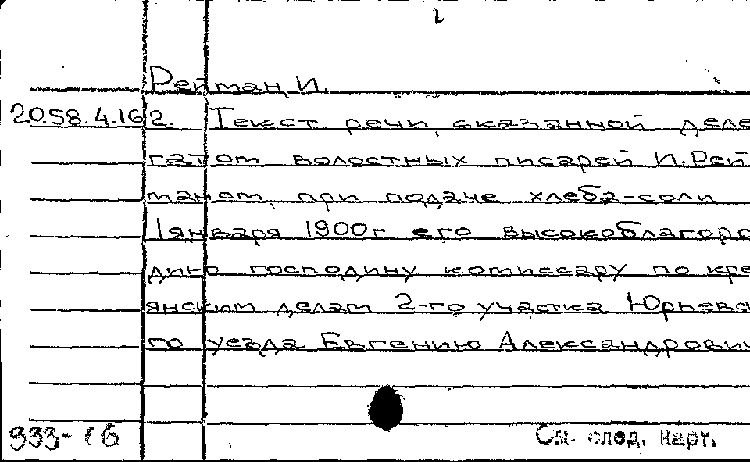 Рейман, И.
2058.4.162. Текст речи, сказанной деле
гатом волостных писарей И. Рей
маном, при подаче хлеба-соли
1 января 1900 г. его высокоблагоро
дию господину комиссару по кре
янским делам 2-го участка Юрьевс
го уезда Евгению Александрович
933-16
См. след. карт.